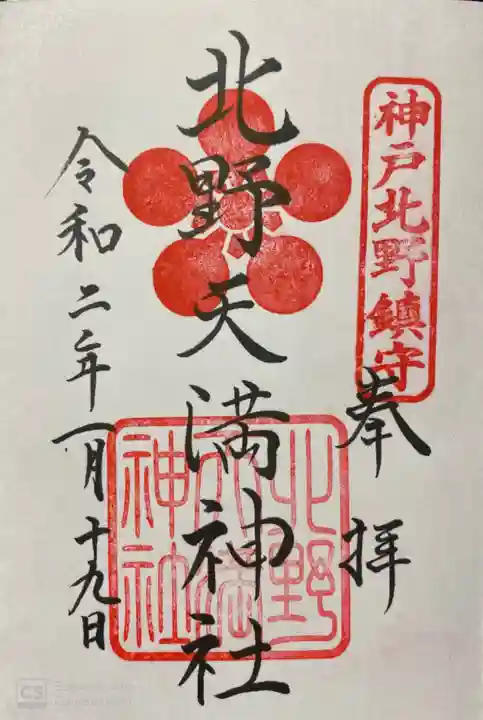 神戸北野鎮守
奉拝
北野天満神社
北野
天満
神社
令和二年一月十九日
CS